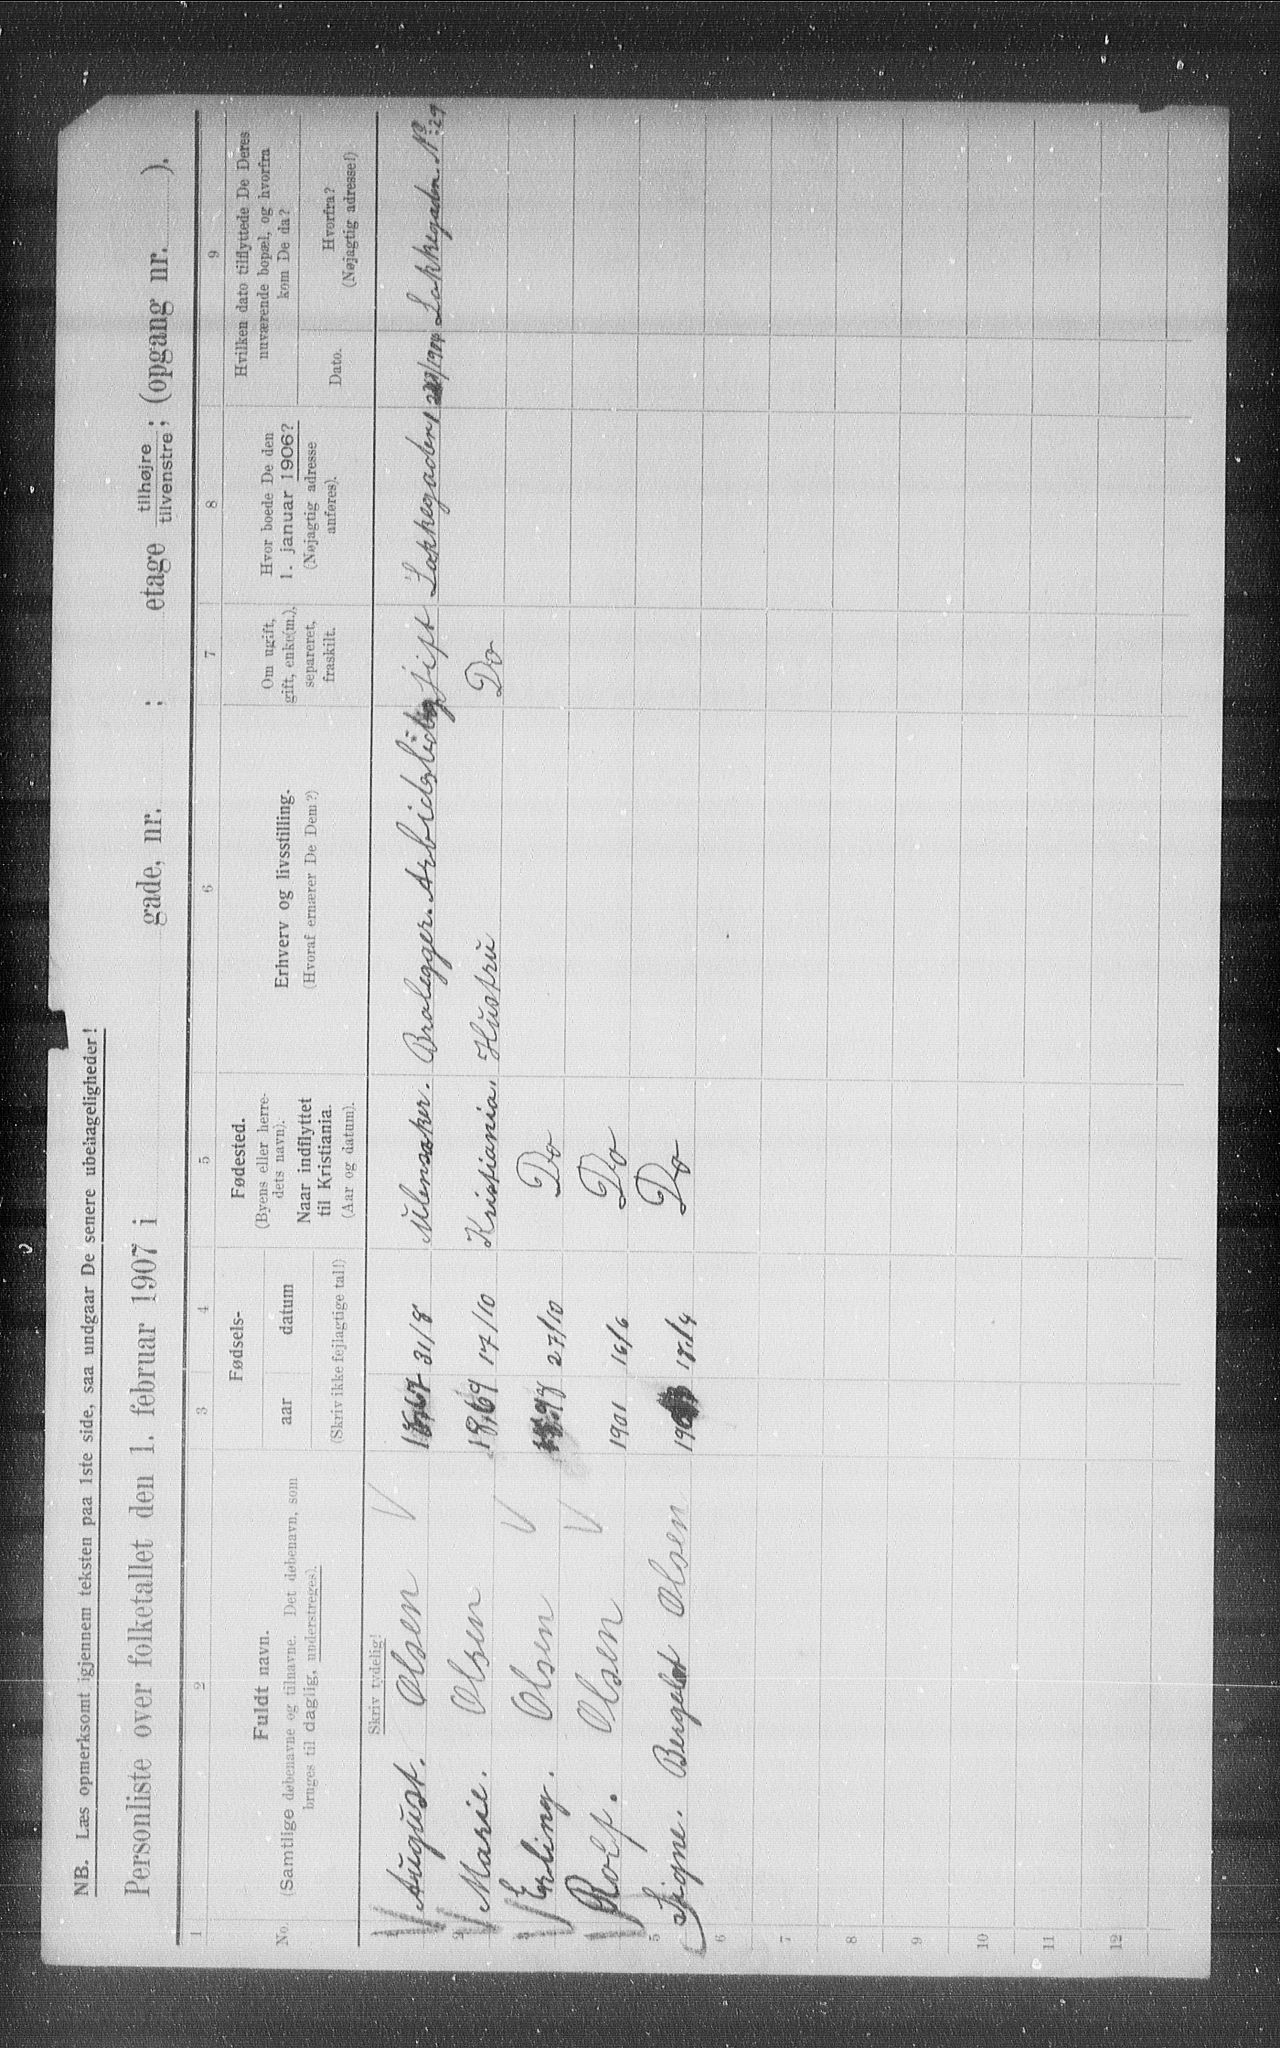 NB. Læs opmerksomt igjennem teksten paa 1ste side, saa undgaar De senere ubehageligheder!
Personliste over folketallet den 1. februar 1907 i gade, nr. ; etage tilhøjre tilvenstre; (opgang nr. ).
1 2 3 4 5 6 7 8 9
No.
Fuldt navn.
(Samtlige døbenavne og tilnavne. Det døbenavn, som
bruges til daglig, understreges).
Fødsels-
aar datum
(Skriv ikke fejlagtige tal!)
Fødested.
(Byens eller herre-
dets navn).
Naar indflyttet
til Kristiania.
(Aar og datum).
Erhverv og livsstilling.
(Hvoraf ernærer De Dem?)
Om ugift,
gift, enke(m.),
separeret,
fraskilt.
Hvor boede De den
1. januar 1906?
(Nøjagtig adresse
anføres).
Hvilken dato tilflyttede De Deres
nuværende bopæl, og hvorfra
kom De da?
Dato.
Hvorfra?
(Nøjagtig adresse!)
Skriv tydelig!
August. Olsen 1867 31/8 Ulensaker. Brolegger. Arbidsledig gift Lakkegaden /1904 Lakkegaden No 29
2 Marie. Olsen 1869 17/10 Kristiania. Hustru Do
Erling. Olsen 1898 27/10 Do
Rolf. Olsen 1901 16/6 Do
5 Signe. Bergelot Olsen 18/4 Do
6
7
8
9
10
11
12